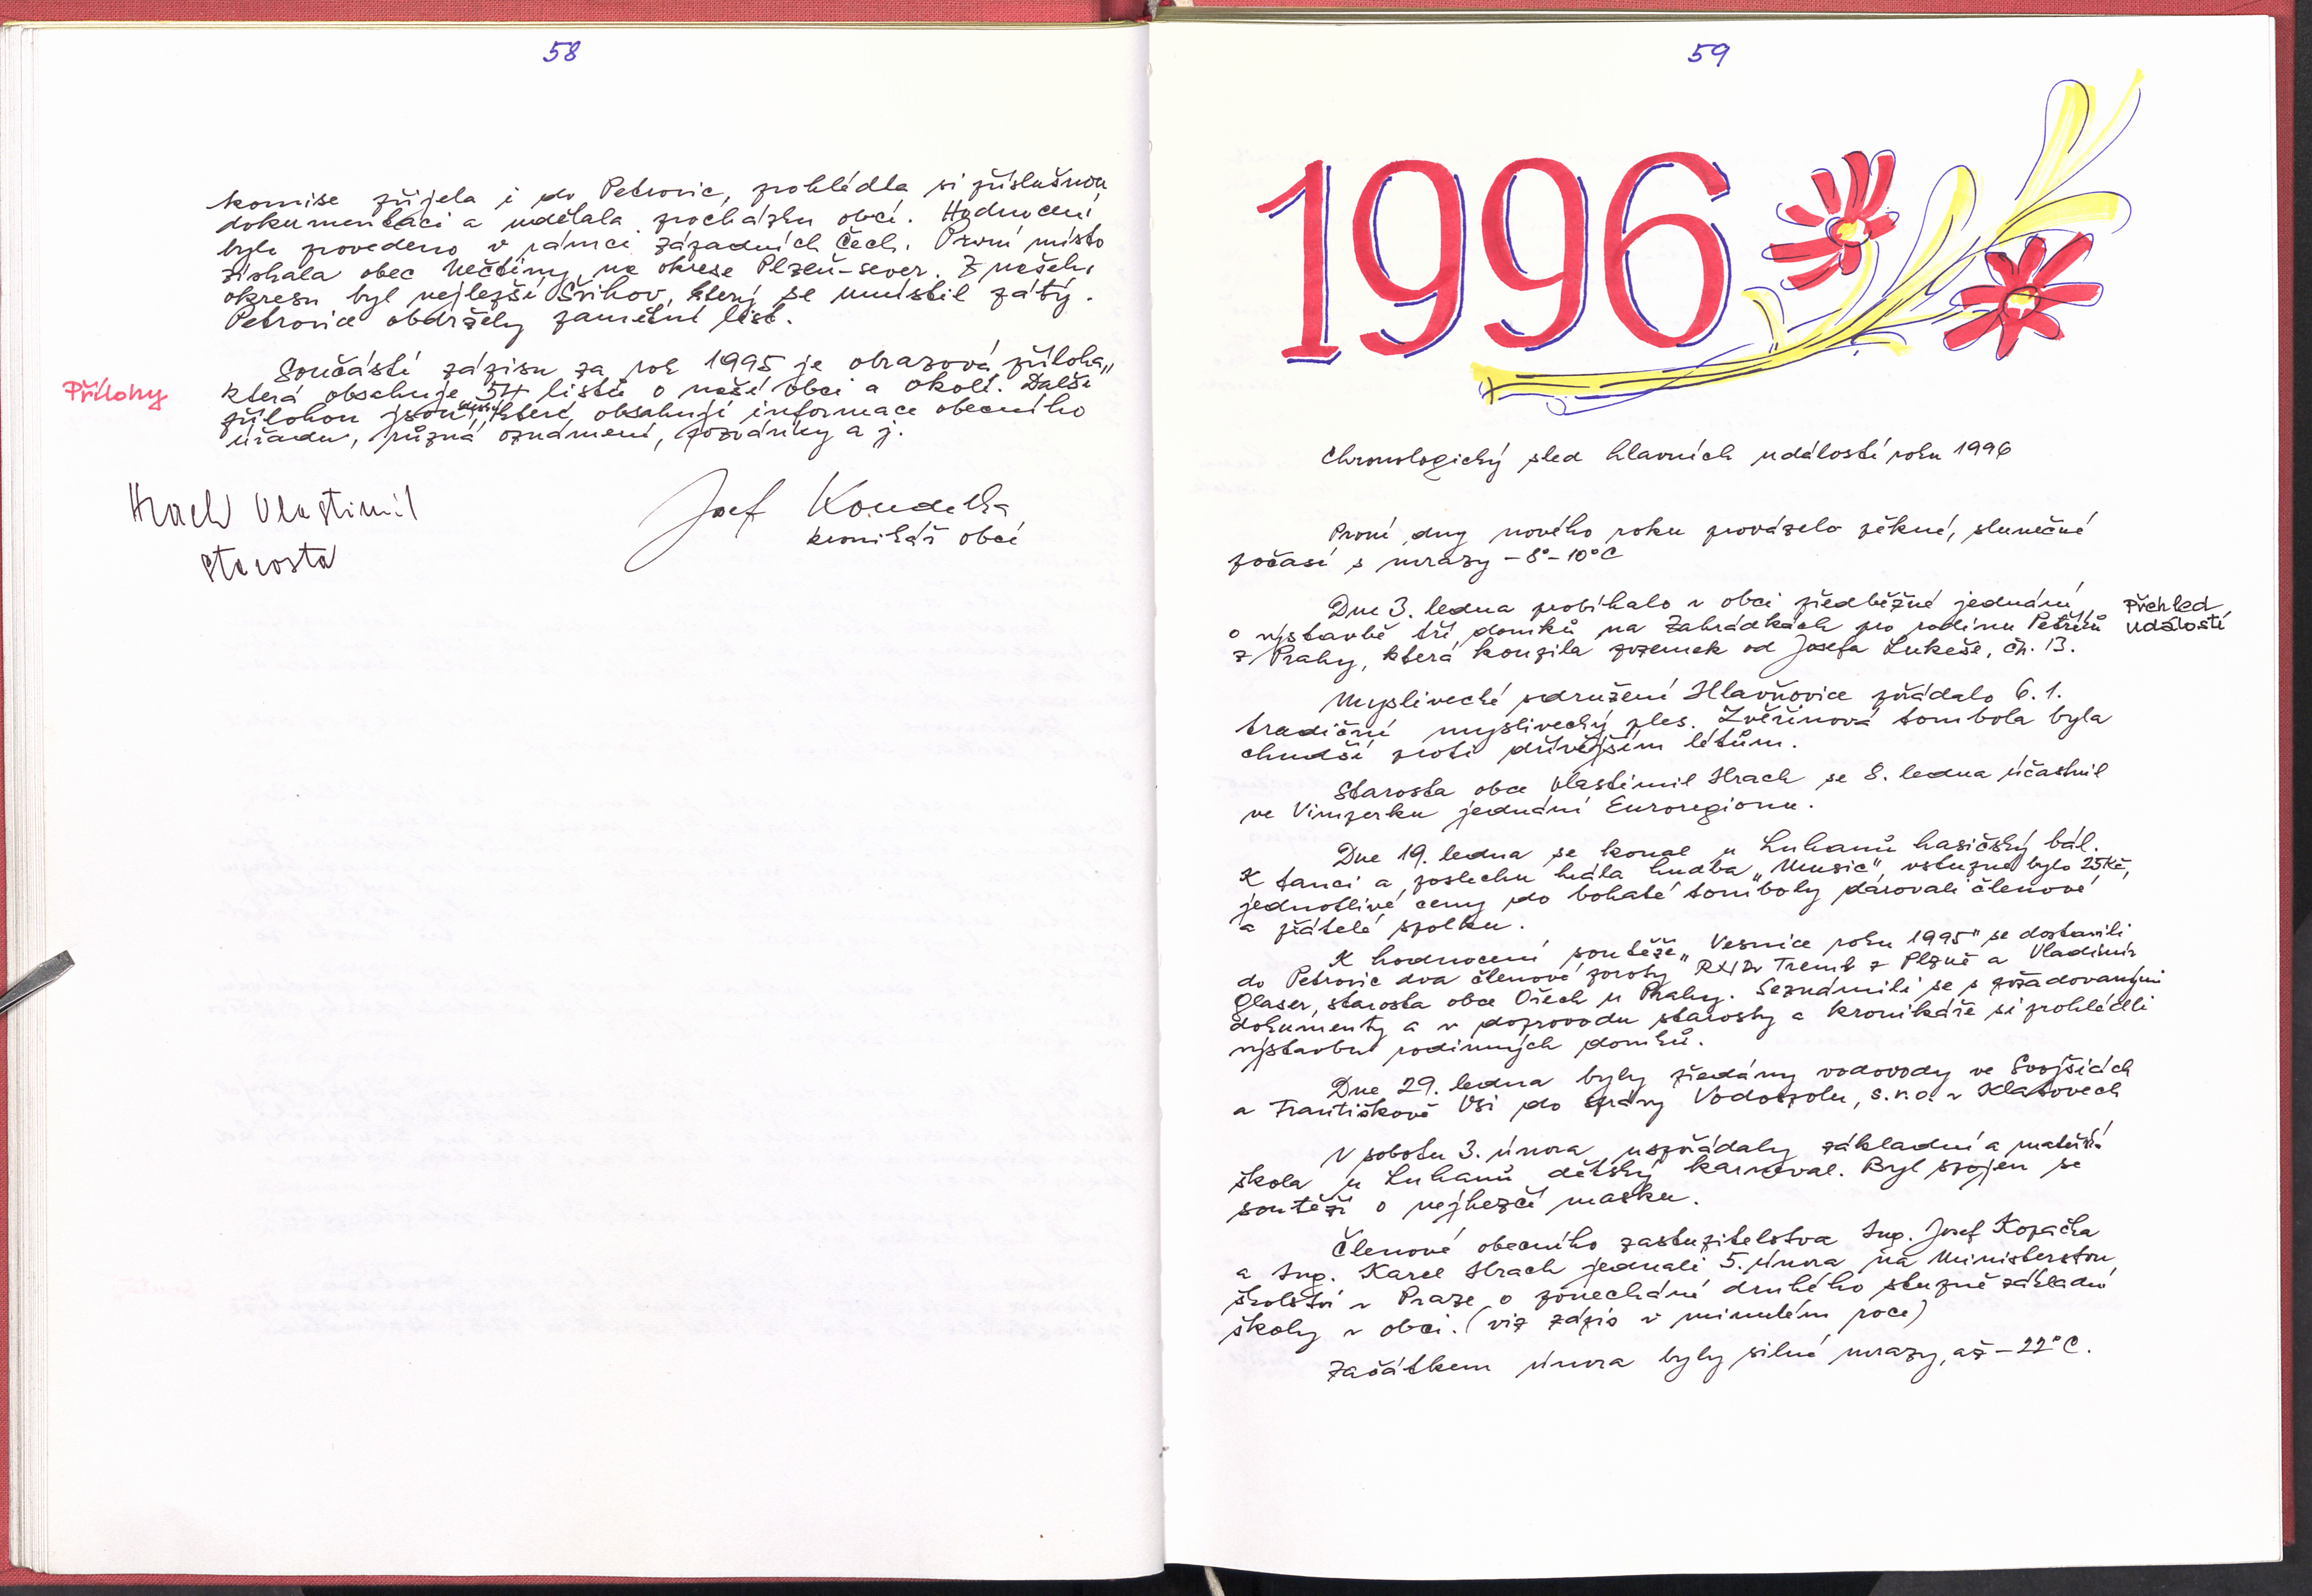 58
komise přijela i do Petrovic, prohlédla si příslušnou
dokumentaci a udělala procházku obcí. Hodnocení
bylo provedeno v rámci západních Čech. První místo
získala obec Nečtiny, na okrese Plzeň-sever. Z našeho
okresu byl nejlepší Švihov, který se umístil pátý.
Petrovice obdržely pamětní list.
Přílohy
Součástí zápisu za rok 1995 je obrazová příloha,
která obsahuje 54 listů o naší obci a okolí. Další
přílohou jsou, které obsahují informace obecního
úřadu, různá oznámení, pozvánky a j.
Hrach Vlastimil
starosta
Josef Koudelka
kronikář obcí
59
1996
Chronologický sled hlavních událostí roku 1996
První dny nového roku provázelo pěkné, slunečné
počasí s mrazy -8°-10°C
Dne 3. ledna probíhalo v obci předběžné jednání
o výstavbě tří domků na Zahrádkách pro rodinu Petříků
z Prahy, která koupila pozemek od Josefa Lukeše, čp. 13.
Přehled
událostí
Myslivecké sdružení Hlavňovice pořádalo 6. 1.
tradiční myslivecký ples. Zvěřinová tombola byla
chudší proti dřívějším létům.
Starosta obce Vlastimil Hrach se 8. ledna účastnil
ve Vimperku jednání Euroregionu.
Dne 19. ledna se konal u Luhanů hasičský bál.
K tanci a poslechu hrála hudba „Music", vstupné bylo 25Kč,
jednotlivé ceny do bohaté tomboly darovali členové
a přátelé spolku.
K hodnocení soutěže „Vesnice roku 1995" se dostavili
do Petrovic dva členové poroty RNDr Treml z Plzně a Vladimír
Glaser, starosta obce Ořech u Prahy. Seznámili se s požadovanými
dokumenty a v doprovodu starosty a kronikáře si prohlédli
výstavbu rodinných domků.
Dne 29. ledna byly předány vodovody ve Svojšicích
a Františkově Vsi do správy Vodospolu, s.r.o. v Klatovech
V sobotu 3. února uspořádaly základní a mateřská
škola u Luhanů dětský karneval. Byl spojen se
soutěží o nejhezčí masku.
Členové obecního zastupitelstva Ing. Josef Kopačka
a Ing. Karel Hrach jednali 5. února na Ministerstvu
školství v Praze o ponechání druhého stupně základní
školy v obci. (viz zápis v minulém roce)
Začátkem února byly silné mrazy, až -22°C.